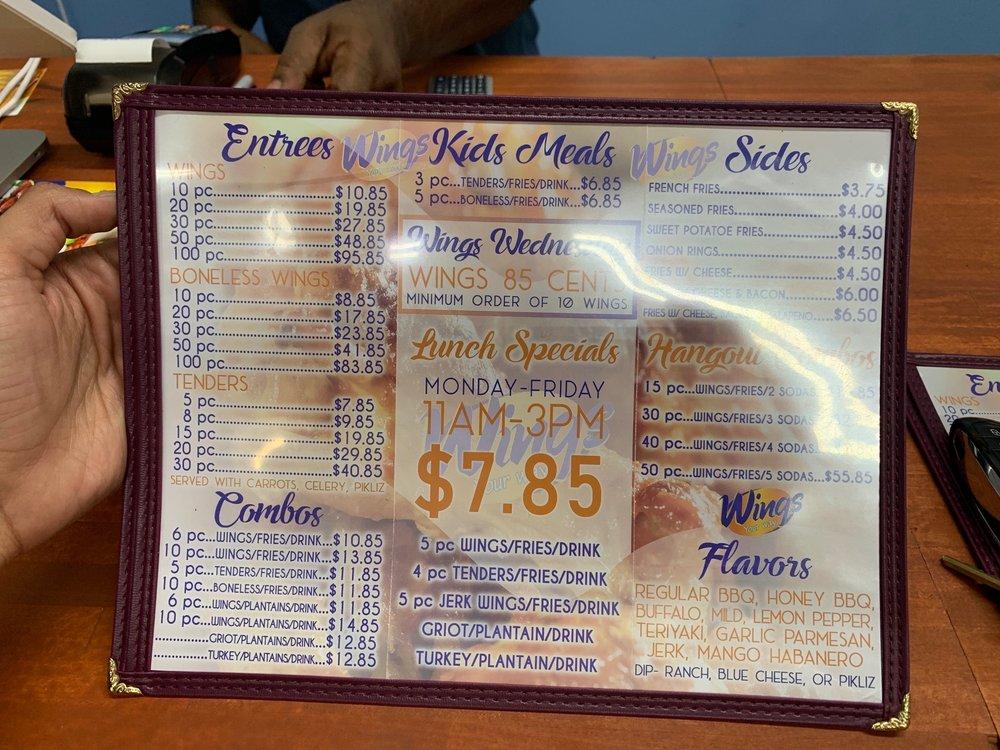 Entrees
WINGS
10 pc...........................$10.85
20 pc...........................$19.85
30 pc...........................$27.85
50 pc...........................$48.85
100 pc.........................$95.85
BONELESS WINGS
10 pc...........................$8.85
20 pc...........................$17.85
30 pc...........................$23.85
50 pc...........................$41.85
100 pc.........................$83.85
TENDERS
5 pc...........................$7.85
8 pc...........................$9.85
15 pc...........................$19.85
20 pc...........................$29.85
30 pc...........................$40.85
SERVED WITH CARROTS, CELERY, PIKLIZ
Combos
6 pc...WINGS/FRIES/DRINK...$10.85
10 pc...WINGS/FRIES/DRINK...$13.85
5 pc...TENDERS/FRIES/DRINK...$11.85
10 pc...BONELESS/FRIES/DRINK...$11.85
6 pc...WINGS/PLANTAINS/DRINK...$11.85
10 pc...WINGS/PLANTAINS/DRINK...$14.85
...............GRIOT/PLANTAINS/DRINK...$12.85
...............TURKEY/PLANTAINS/DRINK...$12.85
Wings
Kids Meals
3 pc...TENDERS/FRIES/DRINK...$6.85
5 pc...BONELESS/FRIES/DRINK...$6.85
Wings
WINGS 85
MINIMUM ORDER OF 10 WINGS
Lunch Specials
MONDAY-FRIDAY
11AM-3PM
Wings
$7.85
5 pc WINGS/FRIES/DRINK
4 pc TENDERS/FRIES/DRINK
5 pc JERK WINGS/FRIES/DRINK
GRIOT/PLANTAIN/DRINK
TURKEY/PLANTAIN/DRINK
Wings
Sides
FRENCH FRIES...........................$3.75
SEASONED FRIES.......................$4.00
SWEET POTATO FRIES................$4.50
ONION RINGS...........................$4.50
FRIES W/ CHEESE.....................$4.50
CHEESE & BACON..........$6.00
FRIES W/ CHEESE, .....$6.50
Hangout
15 pc...WINGS/FRIES/2 SODAS
30 pc...WINGS/FRIES/3 SODAS
40 pc...WINGS/FRIES/4 SODAS
50 pc...WINGS/FRIES/5 SODAS...$55.85
Wings
Flavors
REGULAR BBQ, HONEY BBQ,
BUFFALO, MILD, LEMON PEPPER,
TERIYAKI, GARLIC PARMESAN,
JERK, MANGO HABANERO
DIP- RANCH, BLUE CHEESE, OR PIKLIZ
WINGS
10